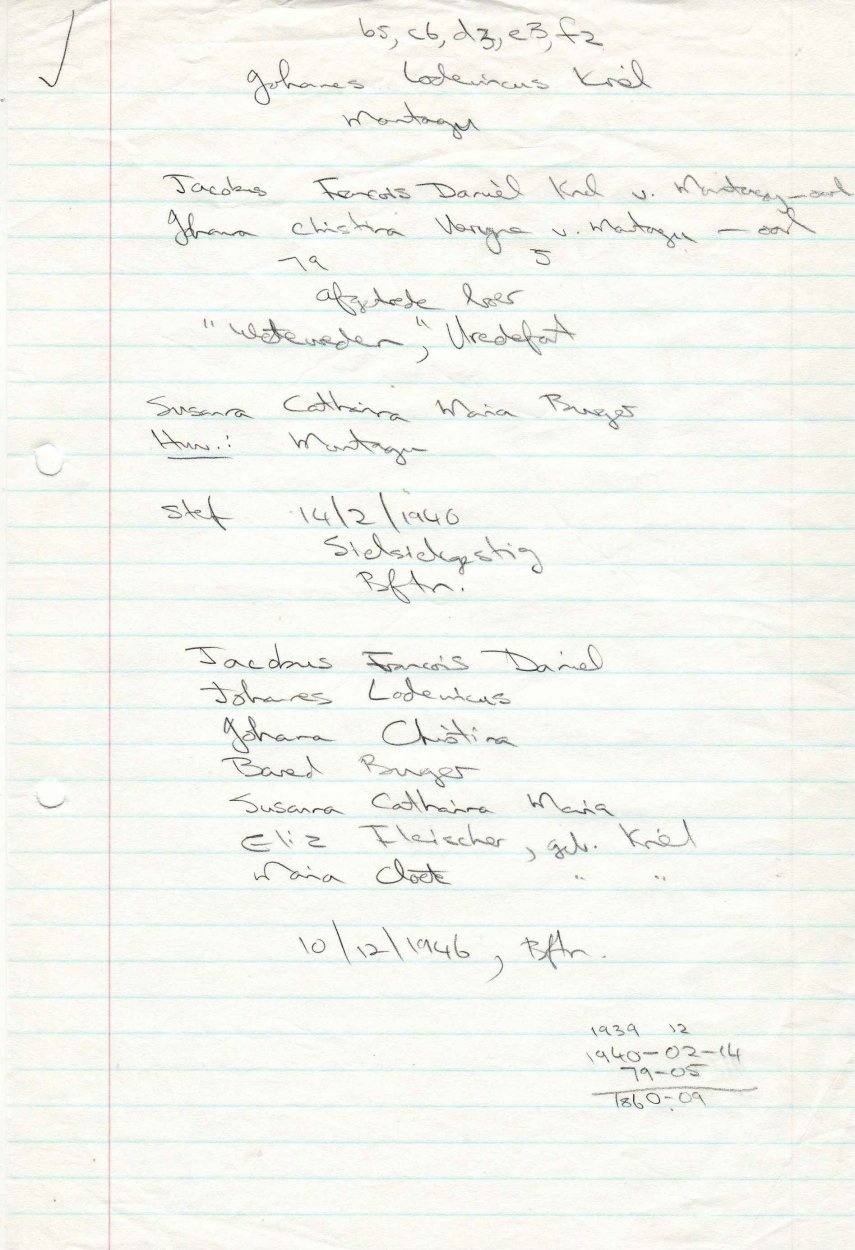 b5, c6, d3, e3, f2
Johanes Lodewicus Kriël
Montagu
Jacobus Francois Daniël Kriel v. Montagu - oorl
Johana Christina v. Montagu - oorl
79 5
afgetrede boer
" ", Vredefort
Susanna Catharina Maria Burger
Huw.: Montagu
Sterf 14/2/1940
Bftn.
Jacobus Francois Daniel
Johanes Lodewicus
Johana Christina
Barend Burger
Susanna Catharina Maria
Eliz Fleischer, geb. Kriël
Maria Cloete " "
10/12/1946, Bftn.
1939 12
1940-02-14
79-05
1860-09